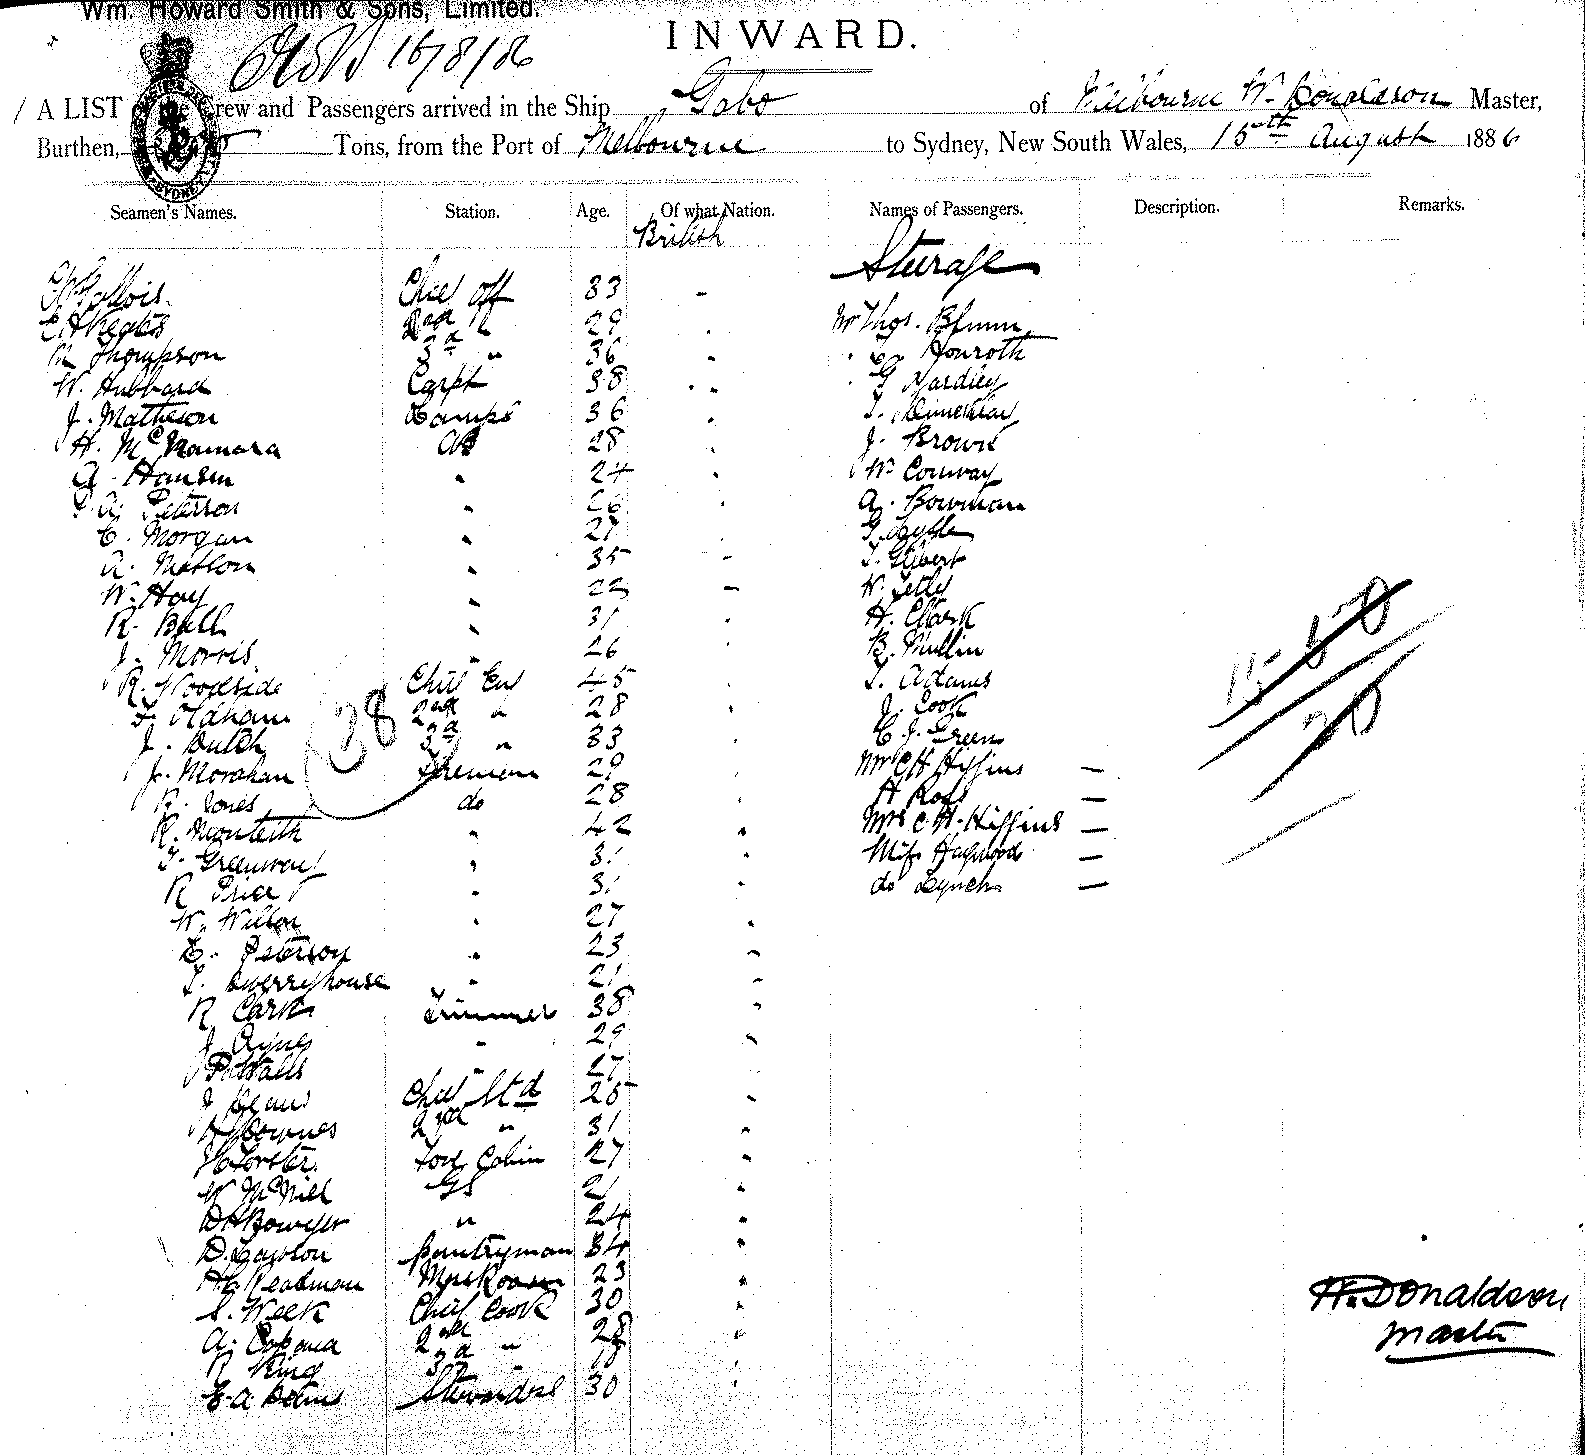 Wm. Howard Smith & Sons, Limited.
INWARD.
16/8/86
A LIST of the Crew and Passengers arrived in the Ship Gabo of Melbourne W. Donaldson Master,
Burthen, Tons, from the Port of Melbourne to Sydney, New South Wales, 15th August 1886
Seamen's Names. Station. Age. Of what Nation. Names of Passengers. Description. Remarks.
British
Steerage
Chief Off 33
29
M Thompson 3d " 36
W. Hubbard Carpt 38
J. Matheson Lamps 36
H. McNamara AB 28
A. Hansen " 24
A. Peterson " 26
C. Morgan " 27
A. " 35
W. Hay " 22
R. Ball " 31
J. Morris " 26
R. Woodside Chief Eng 45
Oldham 2nd " 28
J. Dutch 3d " 33
J. Morahan Fireman 29
R. Jones do 28
R. Monteith " 42
T. Greenway " 31
R Price " 31
W. Wilson " 27
E. Peterson " 23
T. Sweeryhouse " 21
R Clark Trimmer 38
J. " 29
P Walls " 27
J Chief Std 25
H Downes 2nd " 31
Forster Fore Cabin 27
W McNiel GS 21
Bowyer " 24
D. Lawson Pantryman 34
Readman Messroom 23
S. Week Chief Cook 30
A. 2nd " 28
R King 3d " 18
E.A. Stewardess 30
Mr Thos.
G Yardley
T.
J. Brown
W. Conway
A. Bowman
T. Gilbert
W.
H. Clark
B. Mullin
T. Adams
J. Cook
C. J. Green
Mr C H Higgins —
H Ross —
Mrs C. H. Higgins —
Miss Haywood —
do Lynch —
38
H. Donaldson
Master